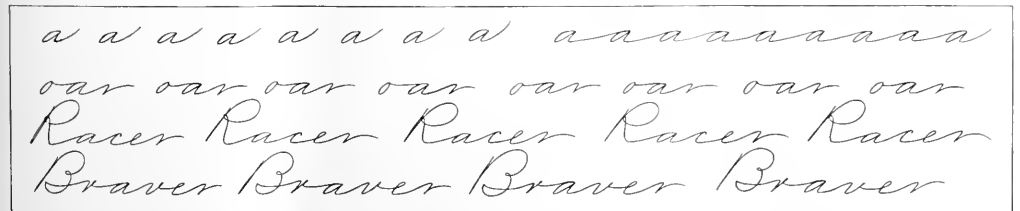 a a a a a a a a aaaaaaaaaa
oar oar oar oar oar oar oar oar
Racer Racer Racer Racer Racer
Braver Braver Braver Braver